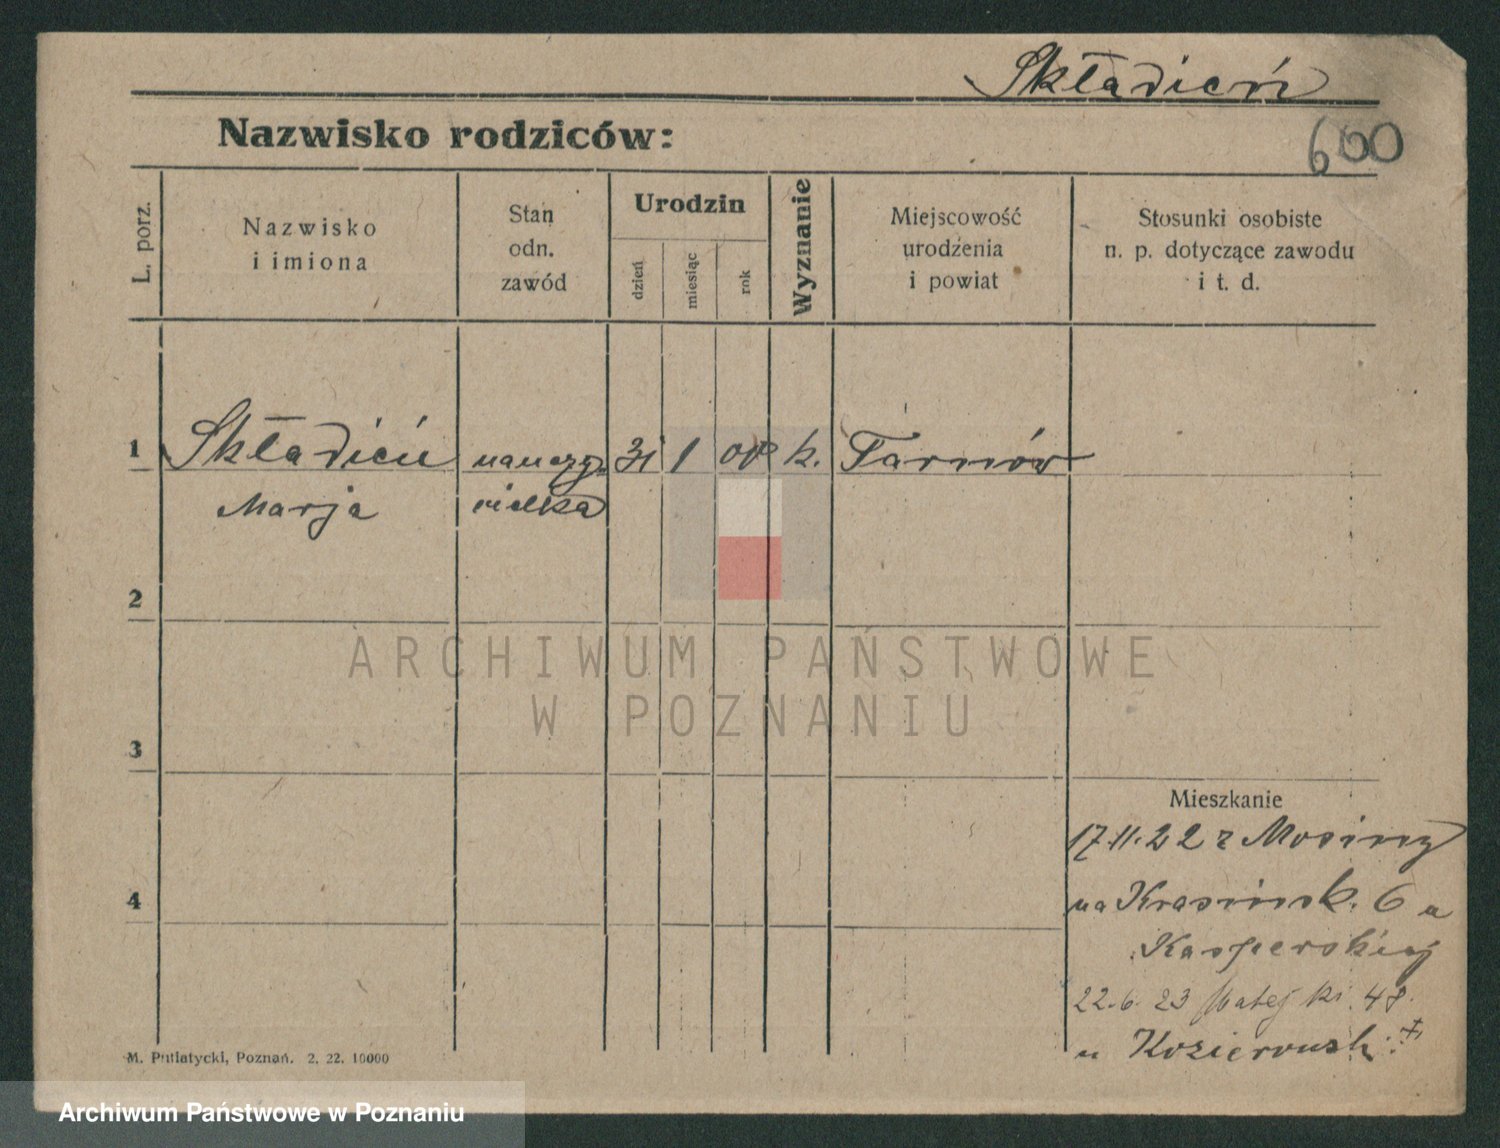 Składień
600
Nazwisko rodziców:
L. porz.
Nazwisko
i imiona
Stan
odn.
zawód
Urodzin
dzień
miesiąc
rok
Wyznanie
Miejscowość
urodzenia
i powiat
Stosunki osobiste
n. p. dotyczące zawodu
i t. d.
1
Składień
Marja
nauczy-
cielka
31
1
00
k.
Tarnów
2
3
4
Mieszkanie
17.11.22 z Mosiny
na Krasińsk. 6 u
Kasperskiej
22.6.23 Matejki 48.
u
M. Putiatycki, Poznań. 2. 22. 10000
ARCHIWUM PAŃSTWOWE
W POZNANIU
Archiwum Państwowe w Poznaniu